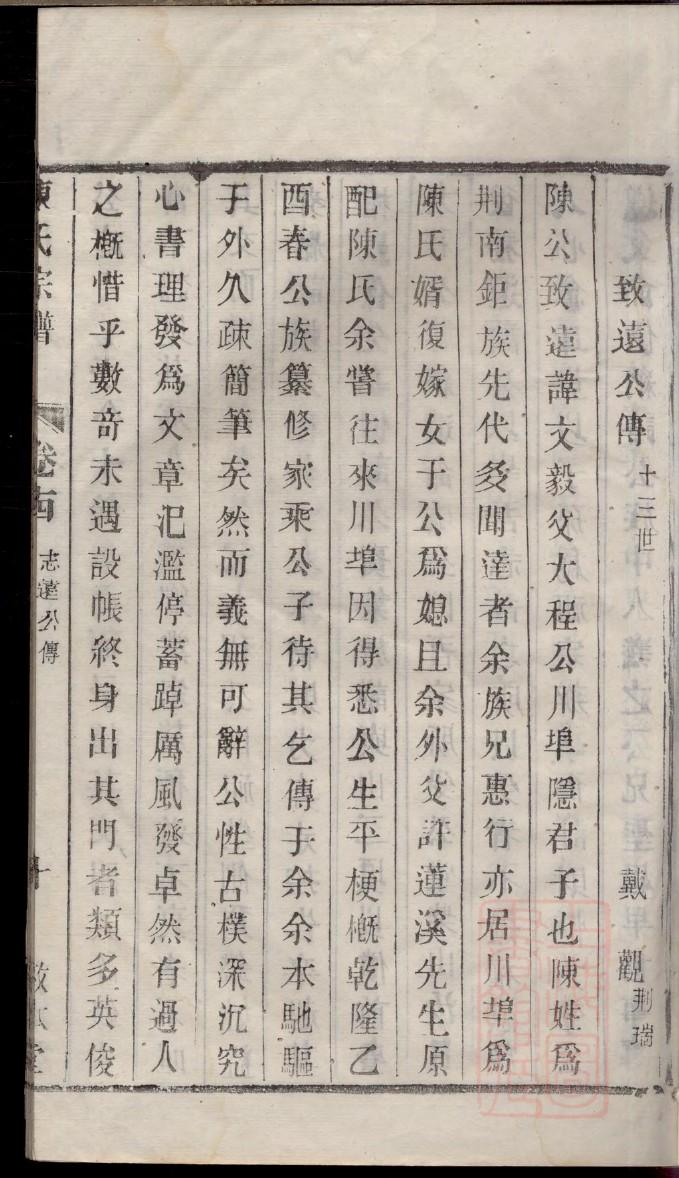 致遠公傳 十三世 戴觀 荆瑞
陳公致遠諱文毅父大程公川埠隱君子也陳姓爲
荆南鉅族先代多聞達者余族兄惠行亦居川埠爲
陳氏婿復嫁女于公爲媳且余外父許蓮溪先生原
配陳氏余嘗往來川埠因得悉公生平梗概乾隆乙
酉春公族纂修家乘公子待其乞傳于余余本馳驅
于外久疎簡筆矣然而義無可辭公性古樸深沉究
心書理發爲文章汜濫停蓄踔厲風發卓然有過人
之概惜乎數奇未遇設帳終身出其門者類多英俊
陳氏宗譜 卷十四 志遠公傳 十